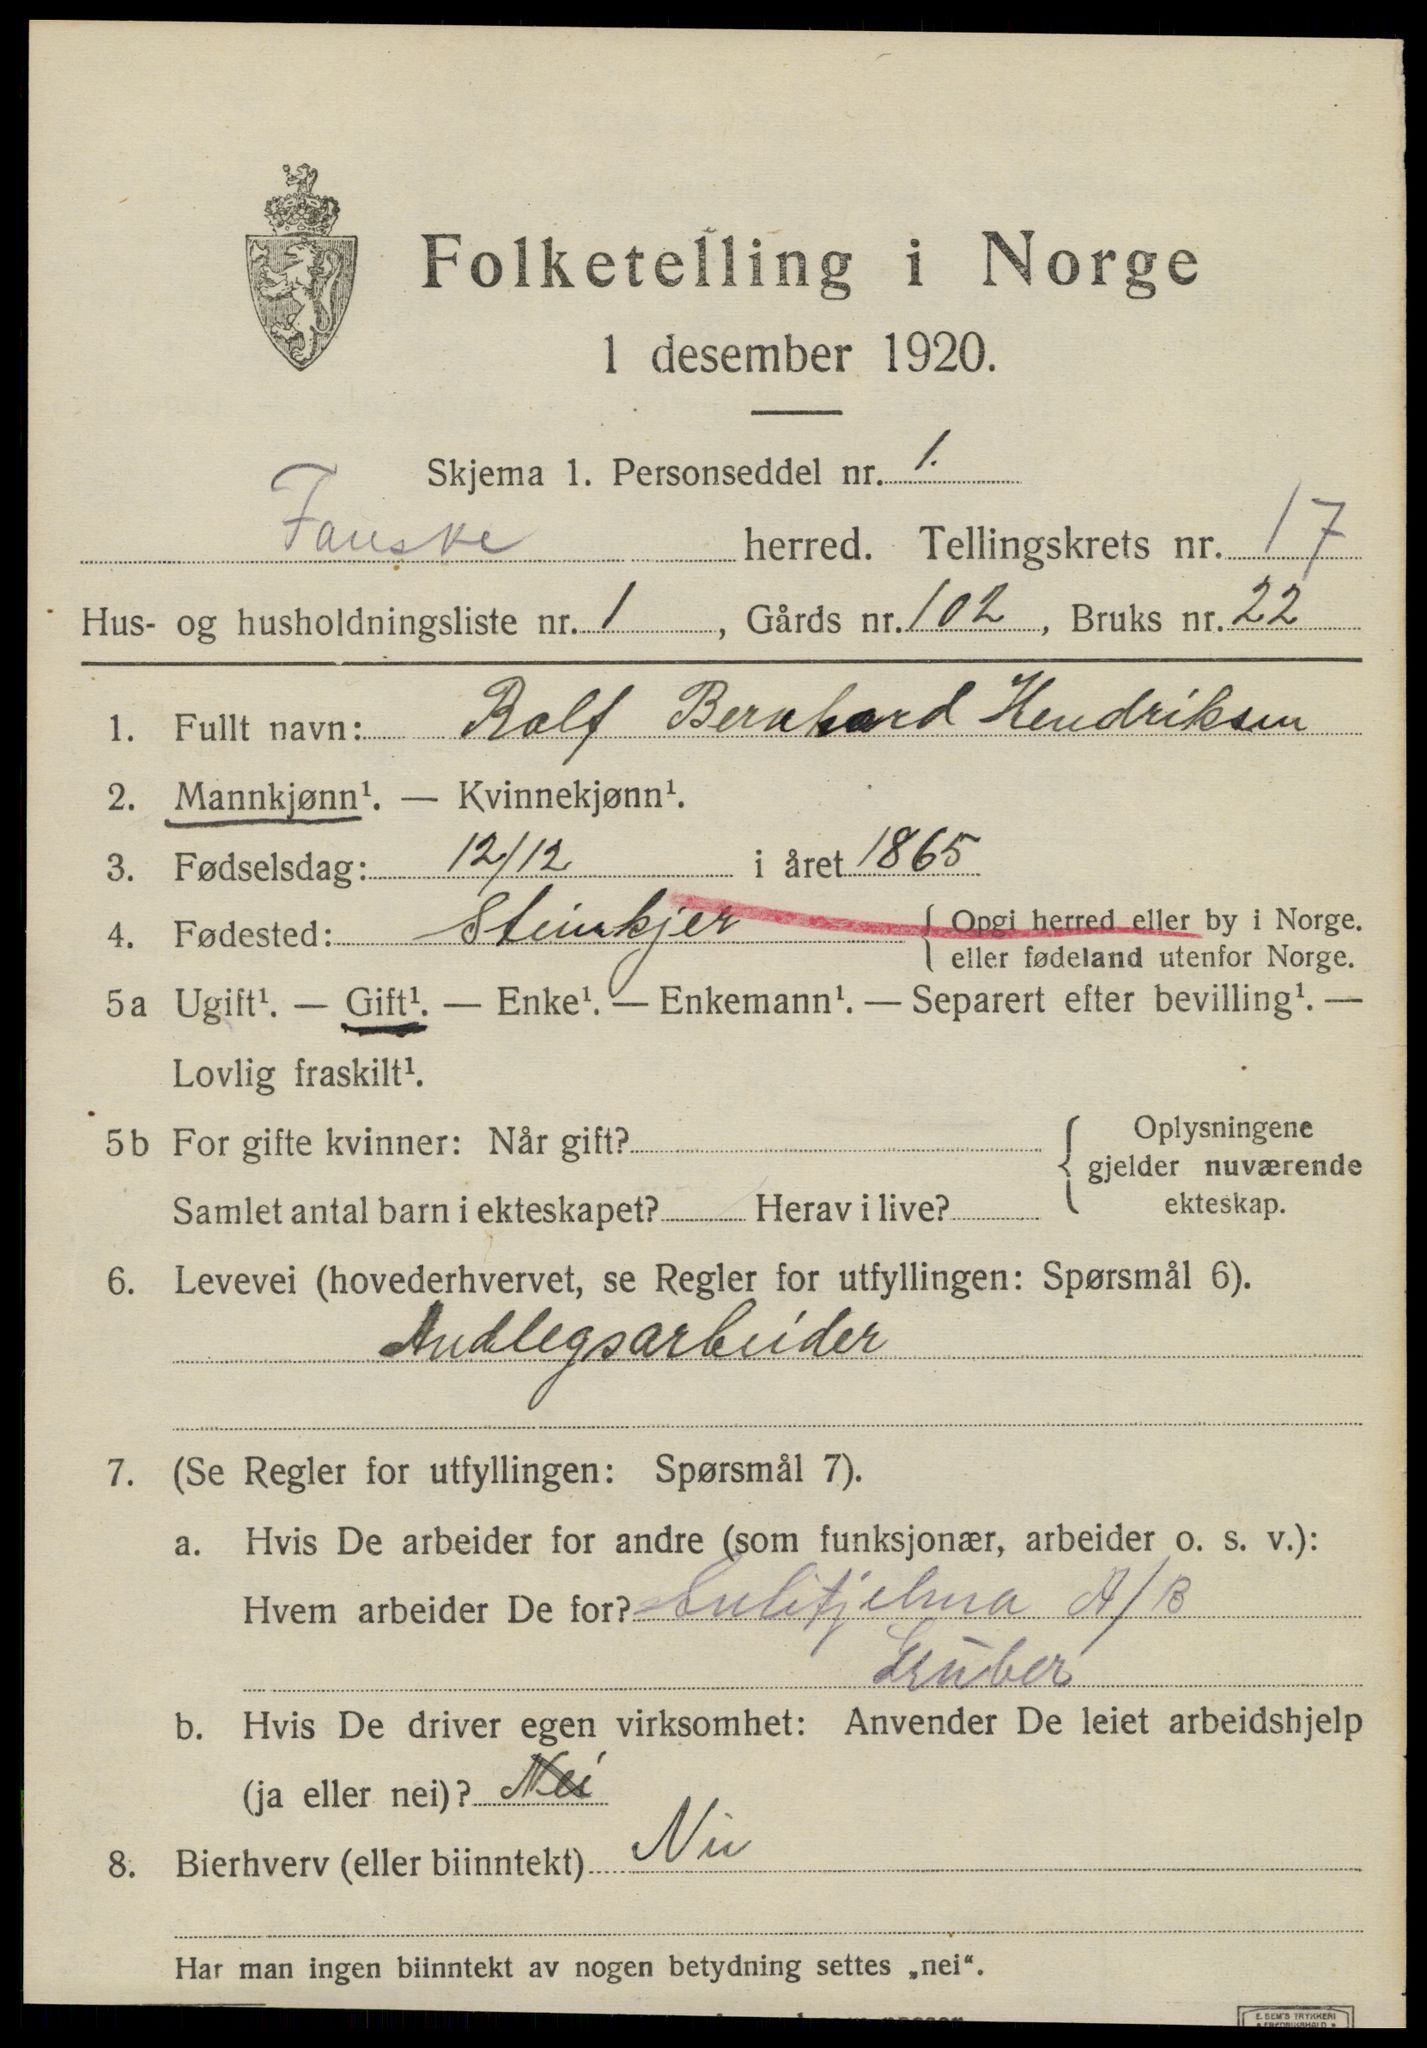 Folketelling i Norge
1 desember 1920.
Skjema 1. Personseddel nr. 1.
Fauske herred. Tellingskrets nr. 17
Hus- og husholdningsliste nr. 1, Gårds nr. 102, Bruks nr. 22
1. Fullt navn: Rolf Bernhard Hendriksen
2. Mannkjønn¹. — Kvinnekjønn¹.
3. Fødselsdag: 12/12 i året 1865
4. Fødested: Steinkjer { Opgi herred eller by i Norge.
eller fødeland utenfor Norge.
5a Ugift¹. — Gift¹. — Enke¹. — Enkemann¹. — Separert efter bevilling¹. —
Lovlig fraskilt¹.
5b For gifte kvinner: Når gift?
Samlet antal barn i ekteskapet? Herav i live?
{ Oplysningene
gjelder nuværende
ekteskap.
6. Levevei (hovederhvervet, se Regler for utfyllingen: Spørsmål 6).
Andlegsarbeider
7. (Se Regler for utfyllingen: Spørsmål 7).
a. Hvis De arbeider for andre (som funksjonær, arbeider o. s. v.):
Hvem arbeider De for? Sulitjelma A/B
Gruber
b. Hvis De driver egen virksomhet: Anvender De leiet arbeidshjelp
(ja eller nei)? Nei
8. Bierhverv (eller biinntekt) Nei
Har man ingen biinntekt av nogen betydning settes „nei“.
E. SEM'S TRYKKERI
FREDRIKSHALD